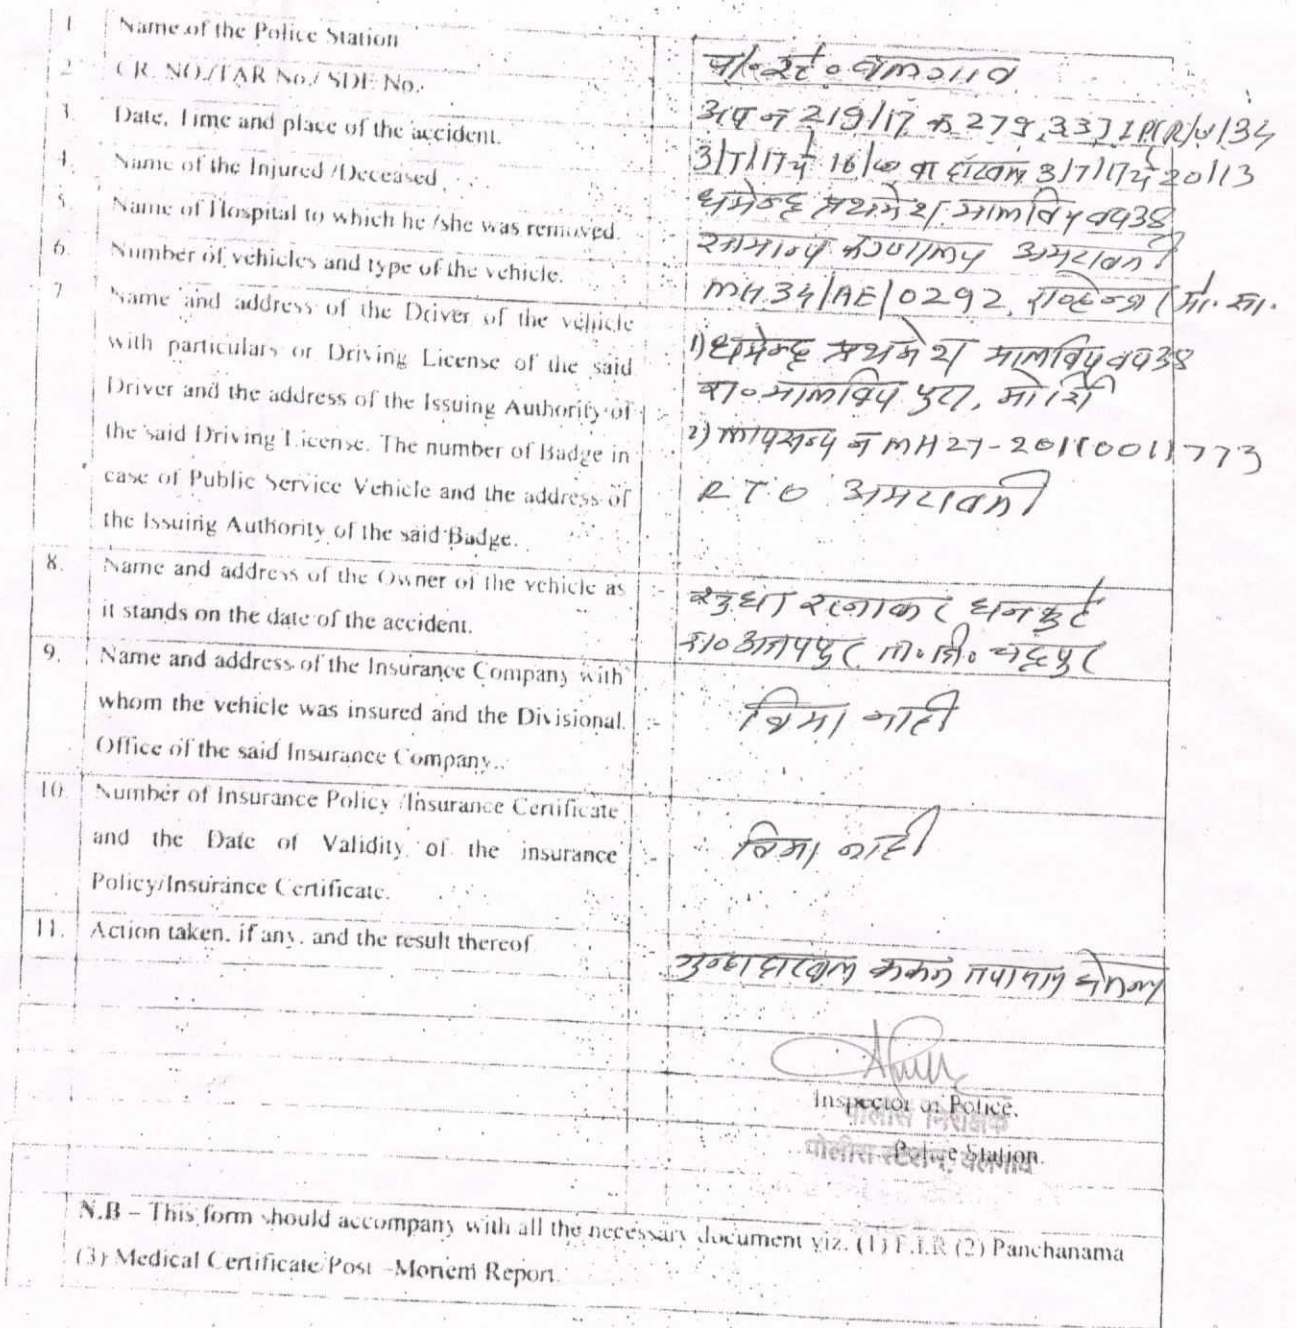 1 Name of the Police Station
पो. स्टे. वलगाव
2 CR. NO./TAR No./ SDE No.
अप नं 219/17 क 279, 337 IPC R/W 134
3. Date, Time and place of the accident.
3/7/17 चे 16/00 वा दाखल 3/7/17 चे 20/13
4. Name of the Injured /Deceased
धर्मेन्द्र मालविय वय 38
5. Name of Hospital to which he /she was removed.
सामान्य रुग्णालय अमरावती
6. Number of vehicles and type of the vehicle.
MH34/AE/0292,
7 Name and address of the Driver of the vehicle
with particulars or Driving License of the said
Driver and the address of the Issuing Authority of :-
the said Driving License. The number of Badge in
case of Public Service Vehicle and the address of
the Issuing Authority of the said Badge.
1) धर्मेन्द्र मालविय वय 38
रा० मालविय पुरा, मोर्शी
2) लायसन्स नं MH27-20110011773
RTO अमरावती
8. Name and address of the Owner of the vehicle as :-
it stands on the date of the accident.
रत्नाकर
रा० ता. जि. चंद्रपुर
9. Name and address of the Insurance Company with
whom the vehicle was insured and the Divisional. :-
Office of the said Insurance Company..
विमा नाही
10. Number of Insurance Policy /Insurance Certificate
and the Date of Validity of the insurance :-
Policy/Insurance Certificate.
विमा नाही
11. Action taken, if any, and the result thereof
गुन्हा दाखल करून तपासात घेतला
Inspector of Police.
पोलीस निरीक्षक
Police Station.
पोलीस स्टेशन, वलगाव
N.B – This form should accompany with all the necessary document viz. (1) F.I.R (2) Panchanama
(3) Medical Certificate/Post –Mortem Report.